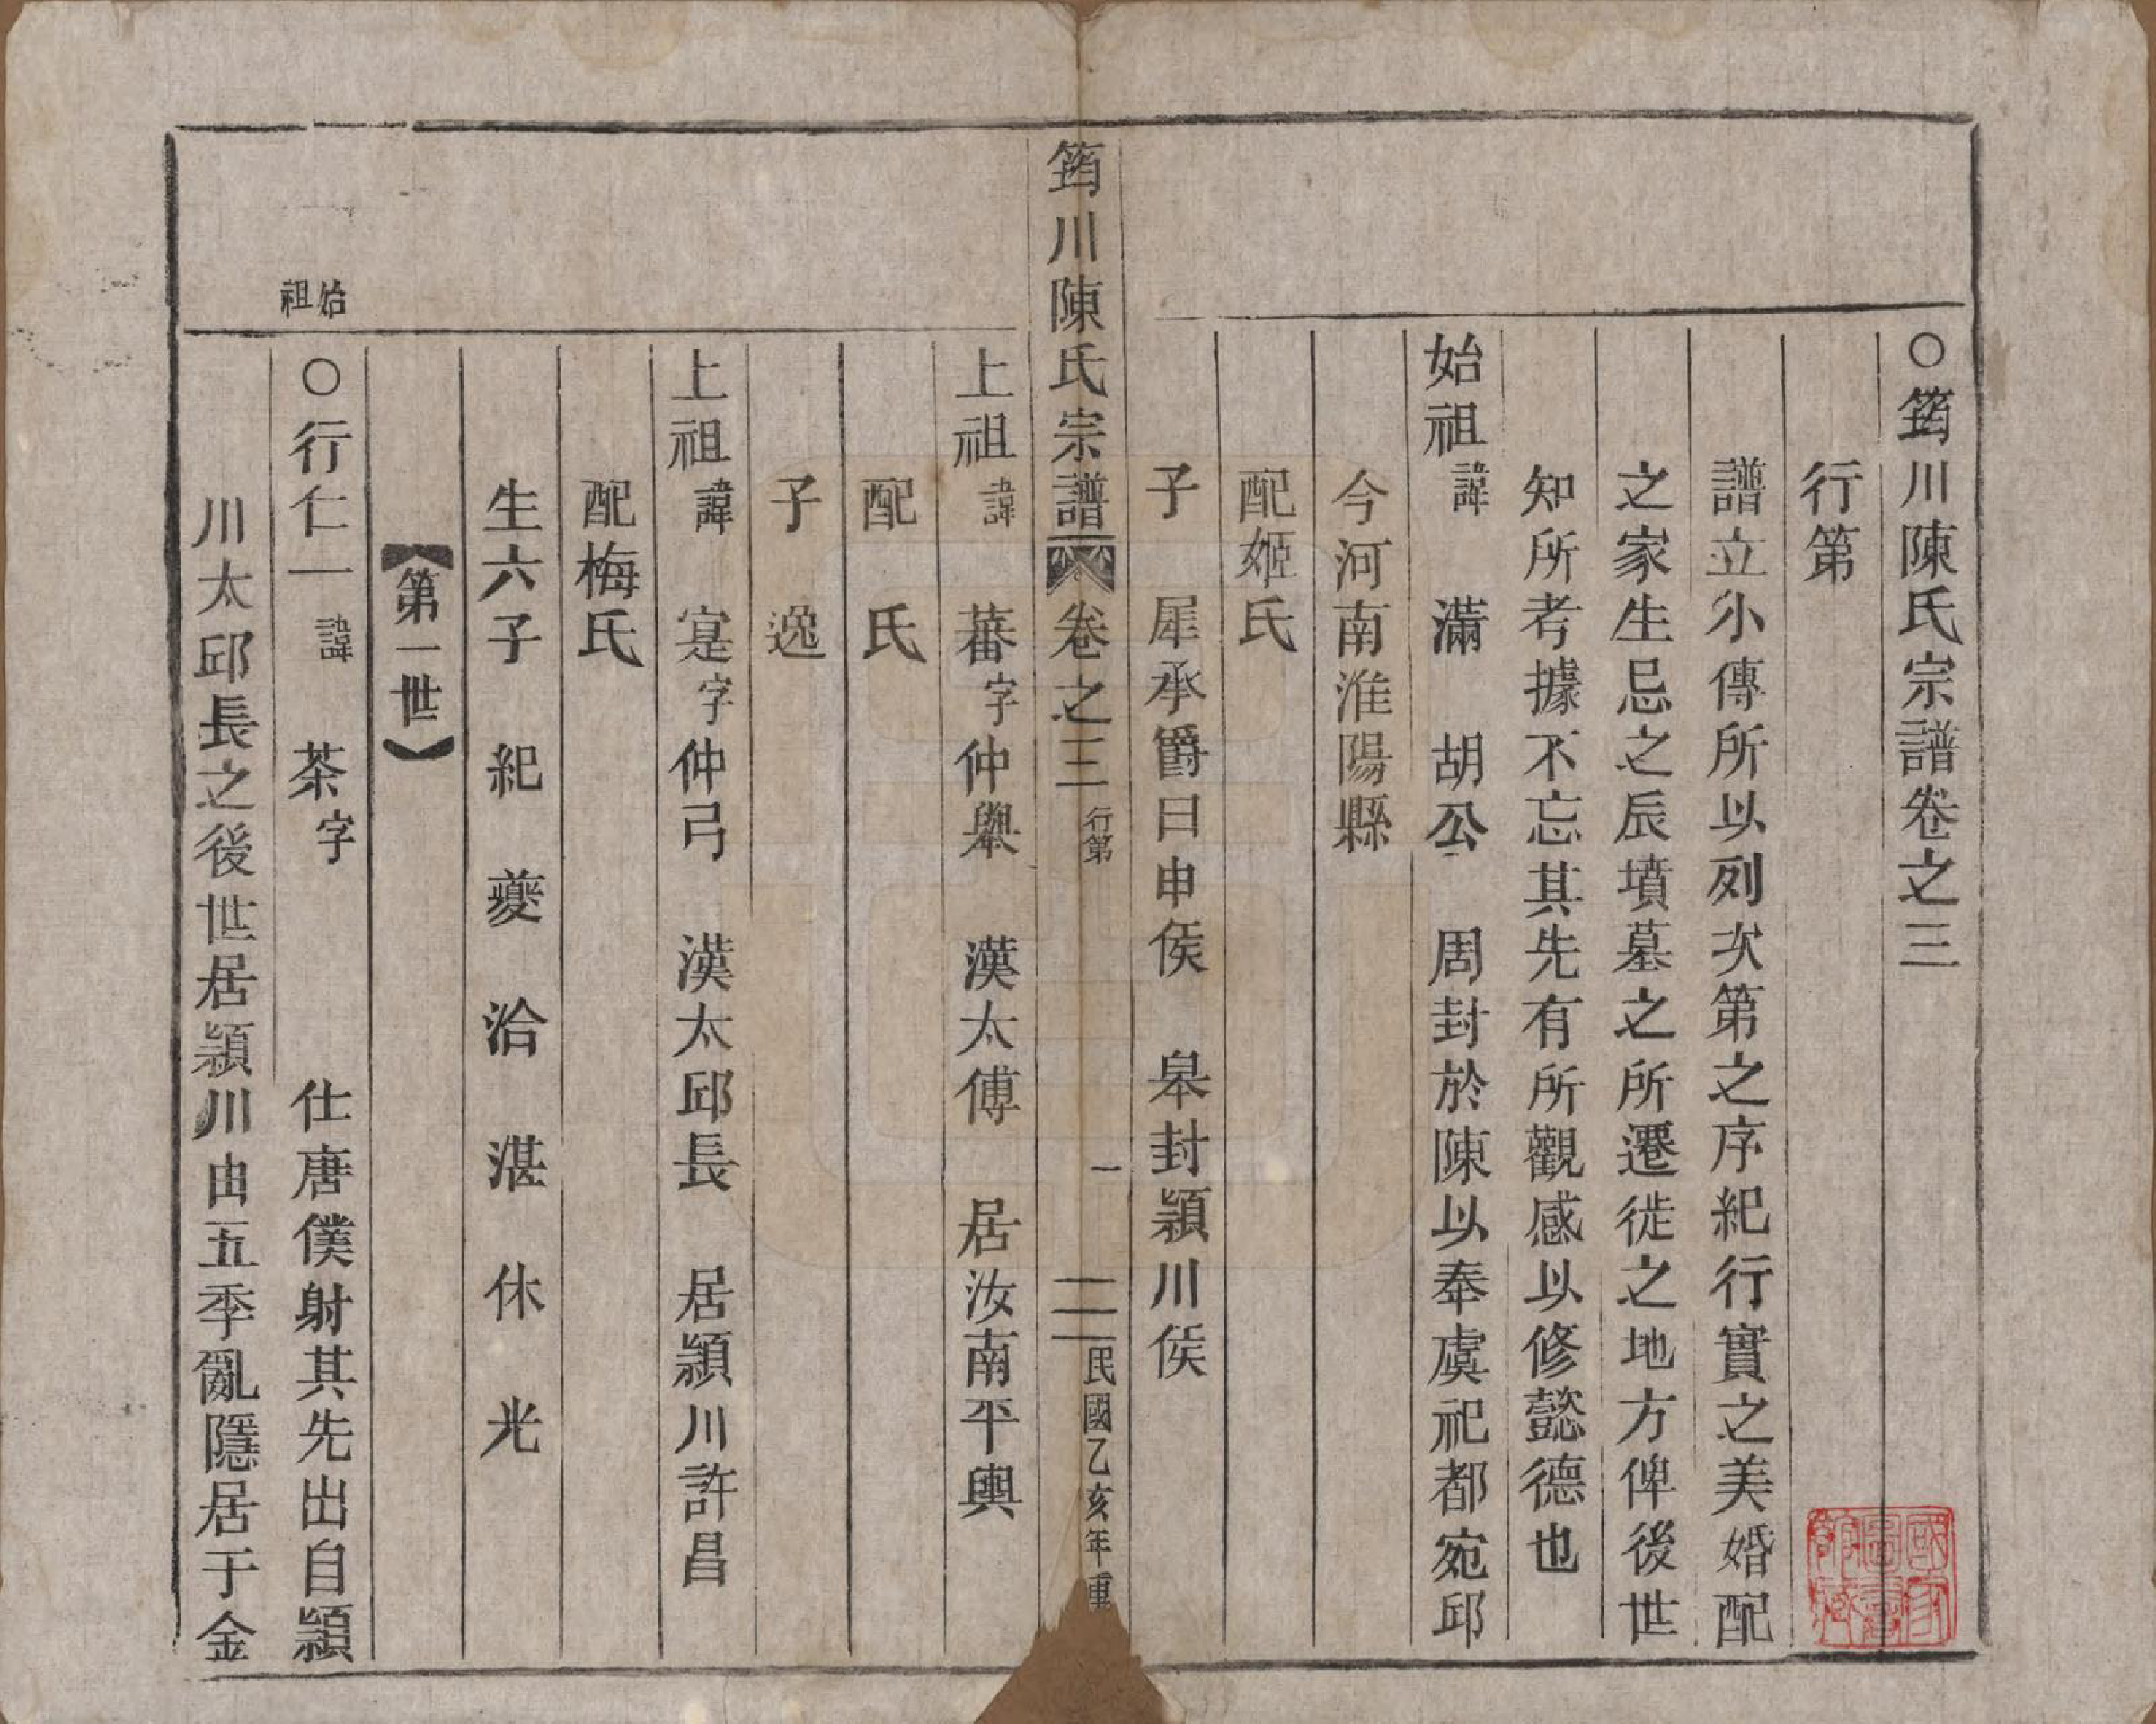 ○筠川陳氏宗譜卷之三
行第
譜立小傳所以列次第之序紀行實之美婚配
之家生忌之辰墳墓之所遷徙之地方俾後世
知所考據不忘其先有所觀感以修懿德也
始祖諱 滿 胡公 周封於陳以奉虞祀都宛邱
今河南淮陽縣
配姬氏
子 犀承爵曰申侯 皋封潁川侯
筠川陳氏宗譜 卷之三 行第 一 民國乙亥年重
上祖諱 蕃字仲舉 漢太傅 居汝南平輿
配 氏
子 逸
上祖諱 寔字仲弓 漢太邱長 居潁川許昌
配梅氏
生六子 紀 夔 洽 湛 休 光
【第一世】
始祖
○行仁一諱 茶字 仕唐僕射其先出自潁
川太邱長之後世居潁川由五季亂隱居于金
國家圖書館藏